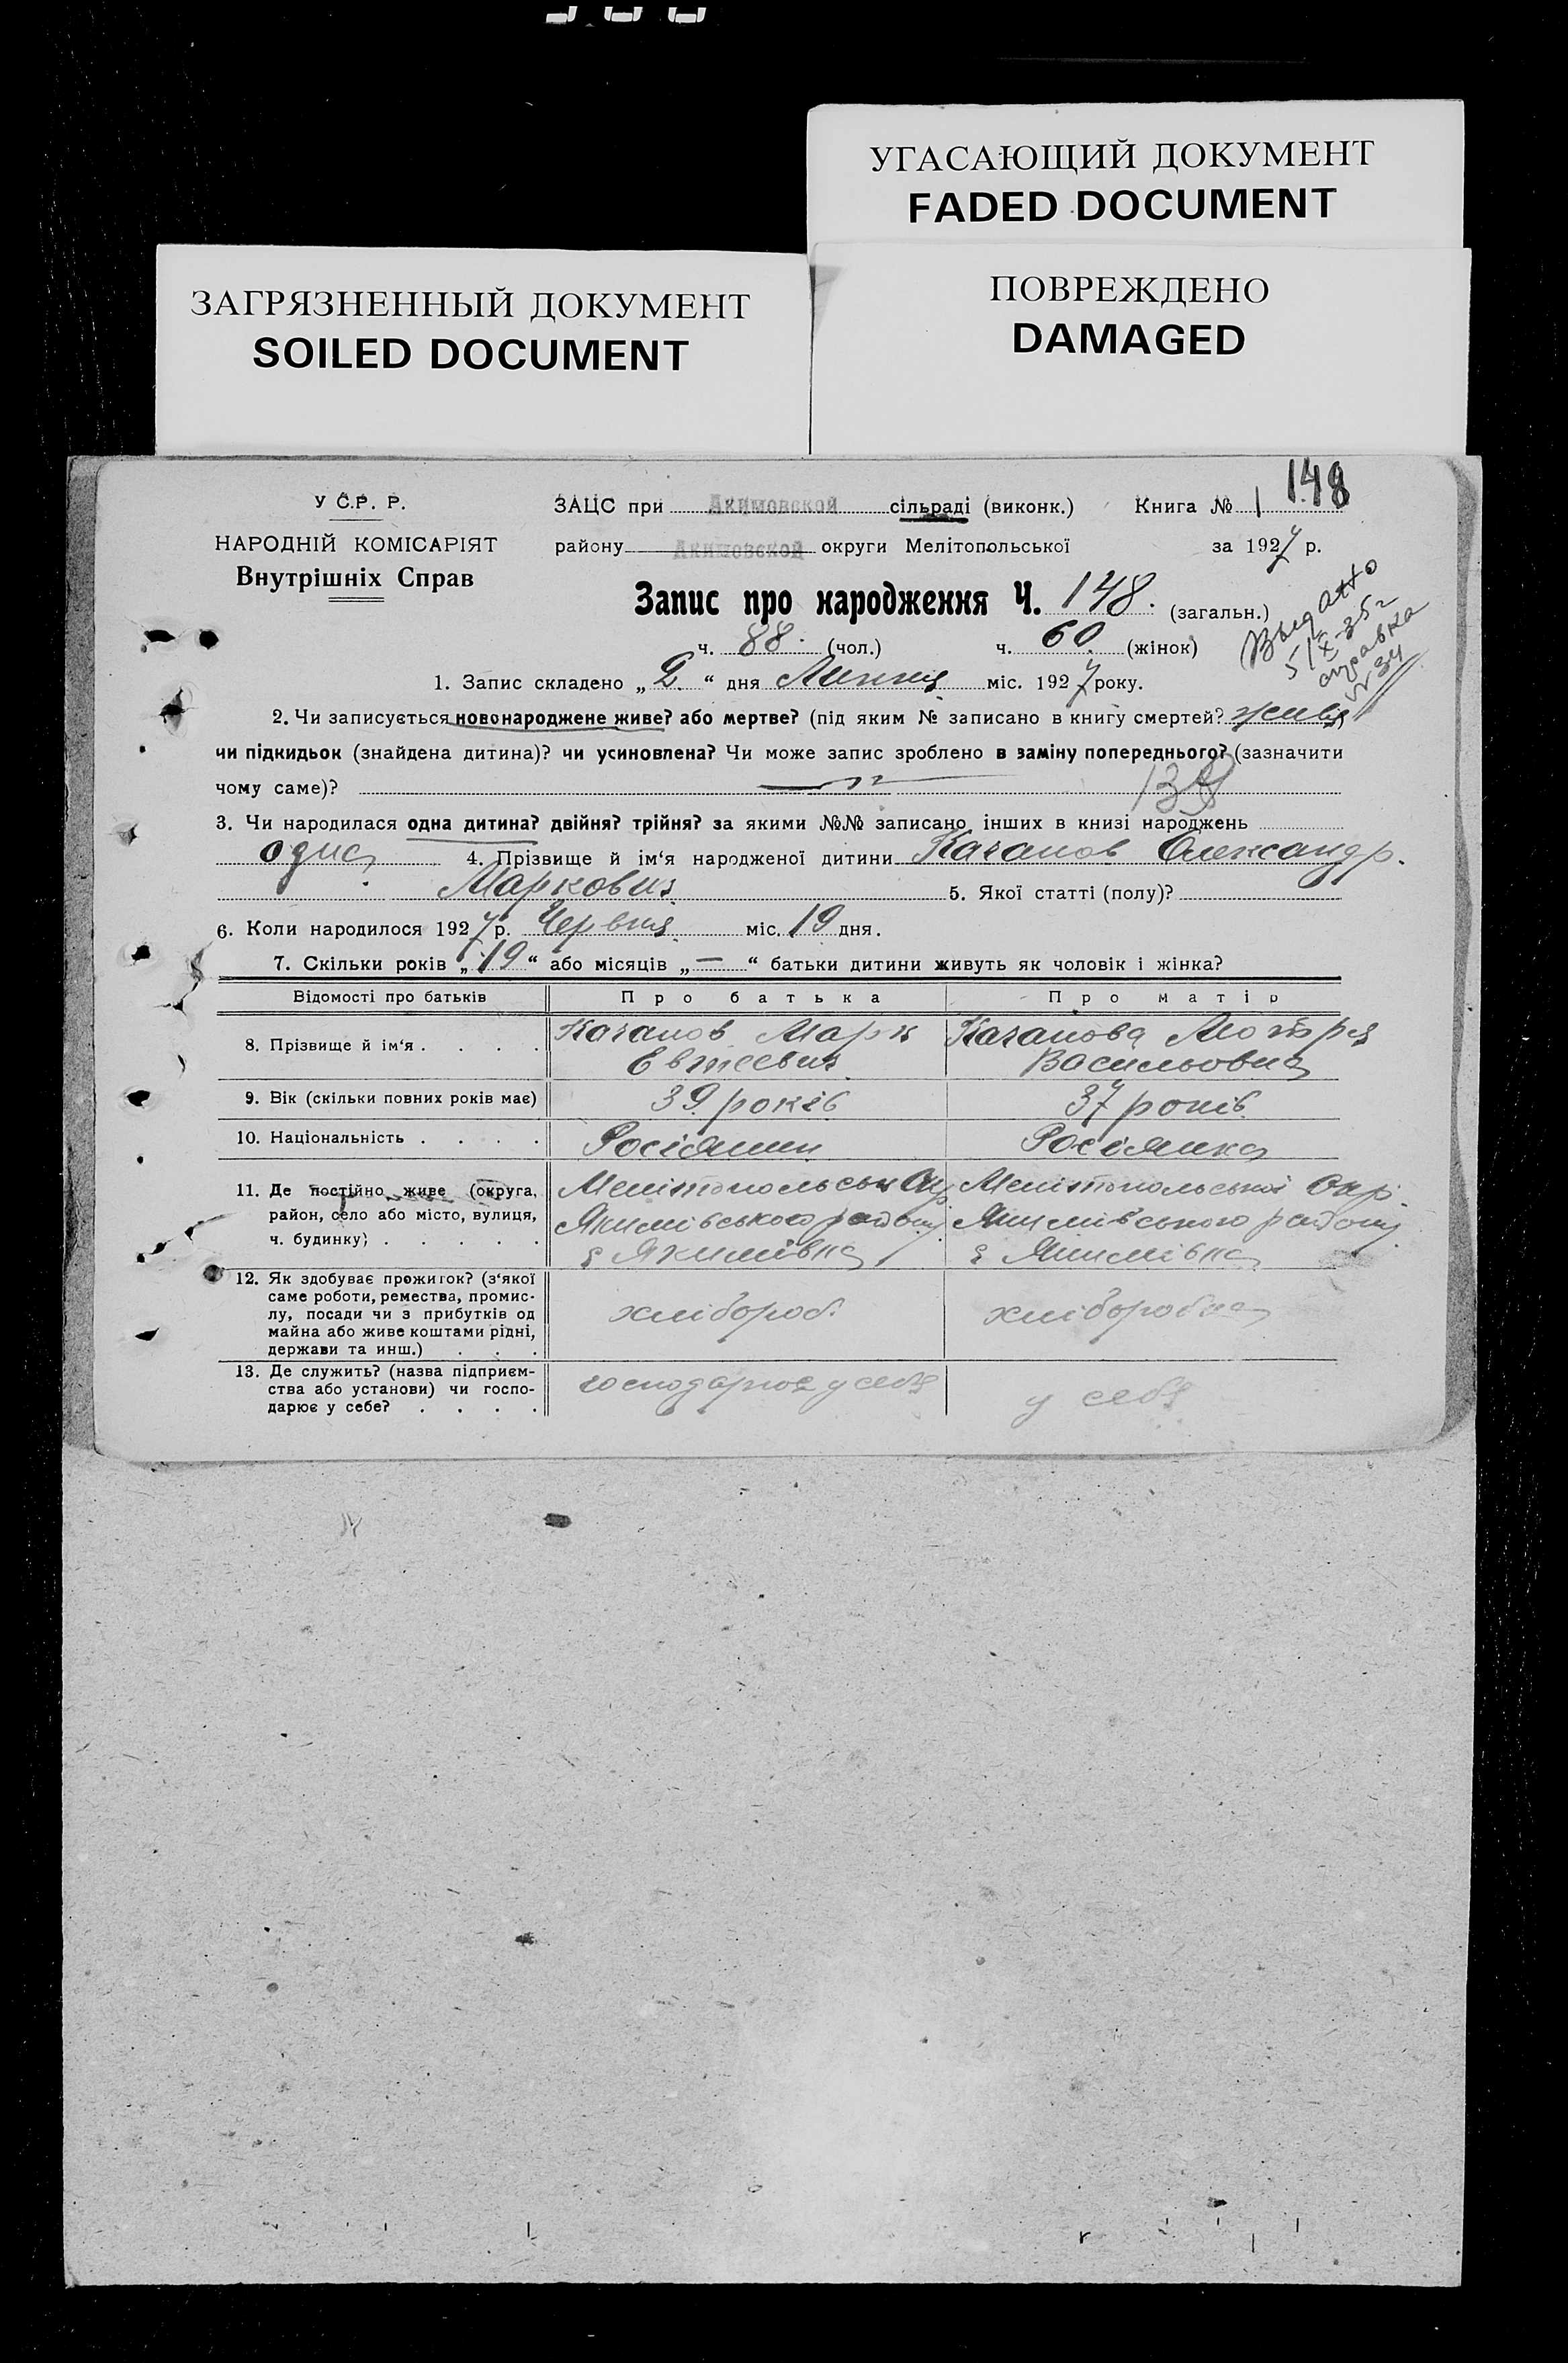 УГАСАЮЩИЙ ДОКУМЕНТ
FADED DOCUMENT
ЗАГРЯЗНЕННЫЙ ДОКУМЕНТ
SOILED DOCUMENT
ПОВРЕЖДЕНО
DAMAGED
148
У С.Р. Р.
НАРОДНІЙ КОМІСАРІЯТ
Внутрішніх Справ
ЗАЦС при Акимовской сільраді (виконк.) Книга № 1
району Акимовской округи Мелітопольської за 1927 р.
Запис про народження Ч. 148. (загальн.)
ч. 88. (чол.) ч. 60. (жінок)
Выдано
5/X-35г
справка
№ 34
1. Запис складено „2.“ дня Липня міс. 1927 року.
2. Чи записується новонароджене живе? або мертве? (під яким № записано в книгу смертей? живе
чи підкидьок (знайдена дитина)? чи усиновлена? Чи може запис зроблено в заміну попереднього? (зазначити
чому саме)?
3. Чи народилася одна дитина? двійня? трійня? за якими №№ записано інших в книзі народжень
одна 4. Прізвище й ім‘я народженої дитини Качанов Олександр.
Маркович 5. Якої статті (полу)?
6. Коли народилося 1927 р. Червня міс. 19 дня.
7. Скільки років „19“ або місяців „—“ батьки дитини живуть як чоловік і жінка?
Відомості про батьків Про батька Про матір
8. Прізвище й ім‘я . . . . Качанов Марк Качанова Мотря
Евтеевич Васильовна
9. Вік (скільки повних років має) 39 років 37 років
10. Національність . . . . Росіянин Росіянка
11. Де постійно живе (округа, район, село або місто, вулиця, ч. будинку) . . . . .
Мелітопольськ Окр. Мелітопольської Окр.
Якимівського району Якимівського району
с Якимівка с Якимівка
12. Як здобуває прожиток? (з‘якої саме роботи, ремества, промислу, посади чи з прибутків од майна або живе коштами рідні, держави та инш.) . . .
хлібороб. хліборобка
13. Де служить? (назва підприємства або установи) чи господарює у себе? . . . .
господарює у себя у себя